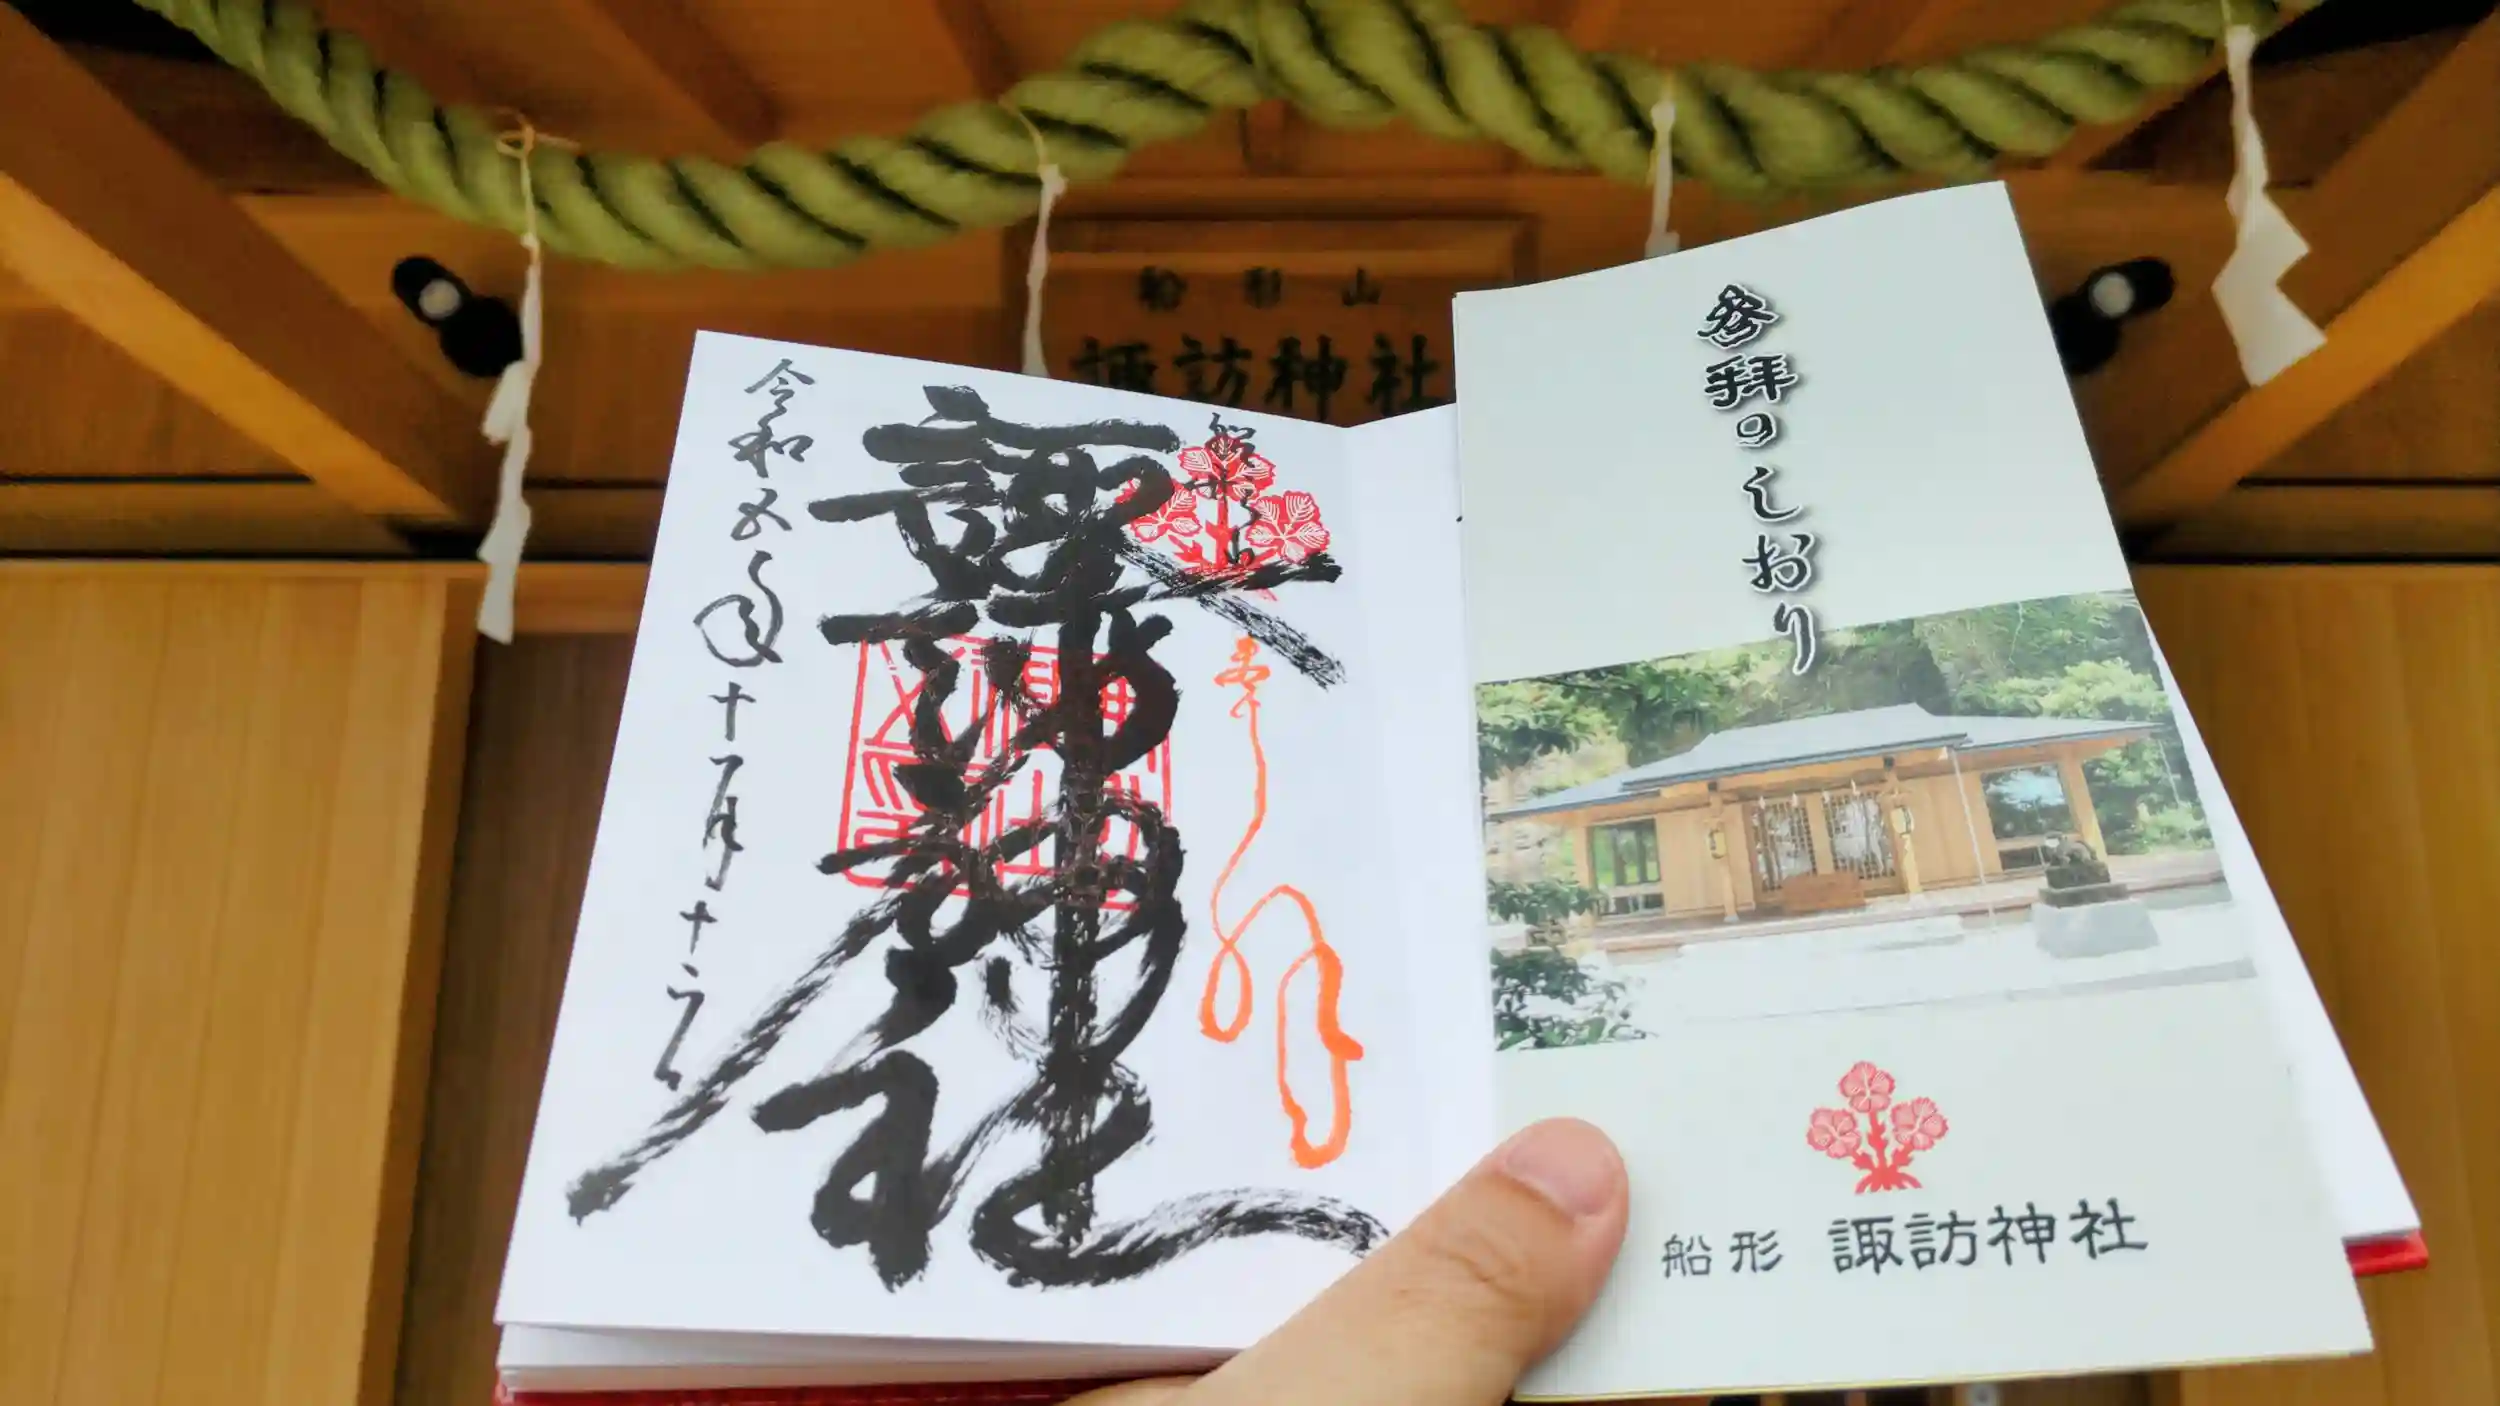 船形山
諏訪神社
船形山
奉拝
諏訪神社
令和五年十一月十
参拝のしおり
船形 諏訪神社